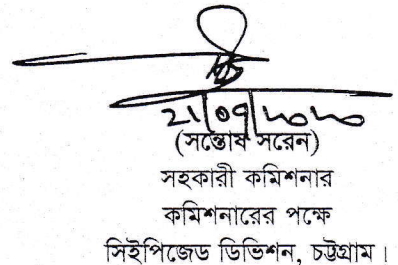 ২১/০৭/২০২০
(সন্তোষ সরেন)
সহকারী কমিশনার
কমিশনারের পক্ষে
সিইপিজেড ডিভিশন, চট্টগ্রাম।